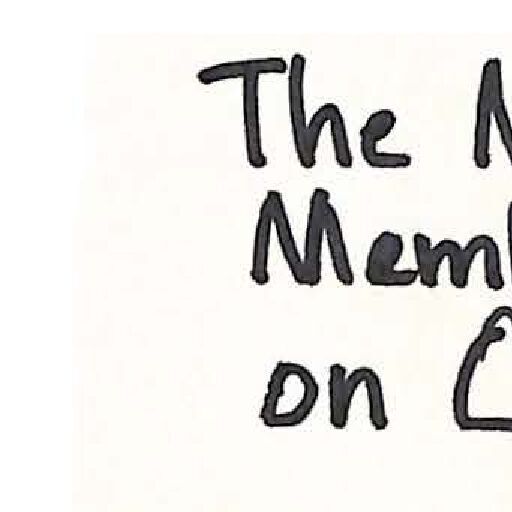 The
Mem
on